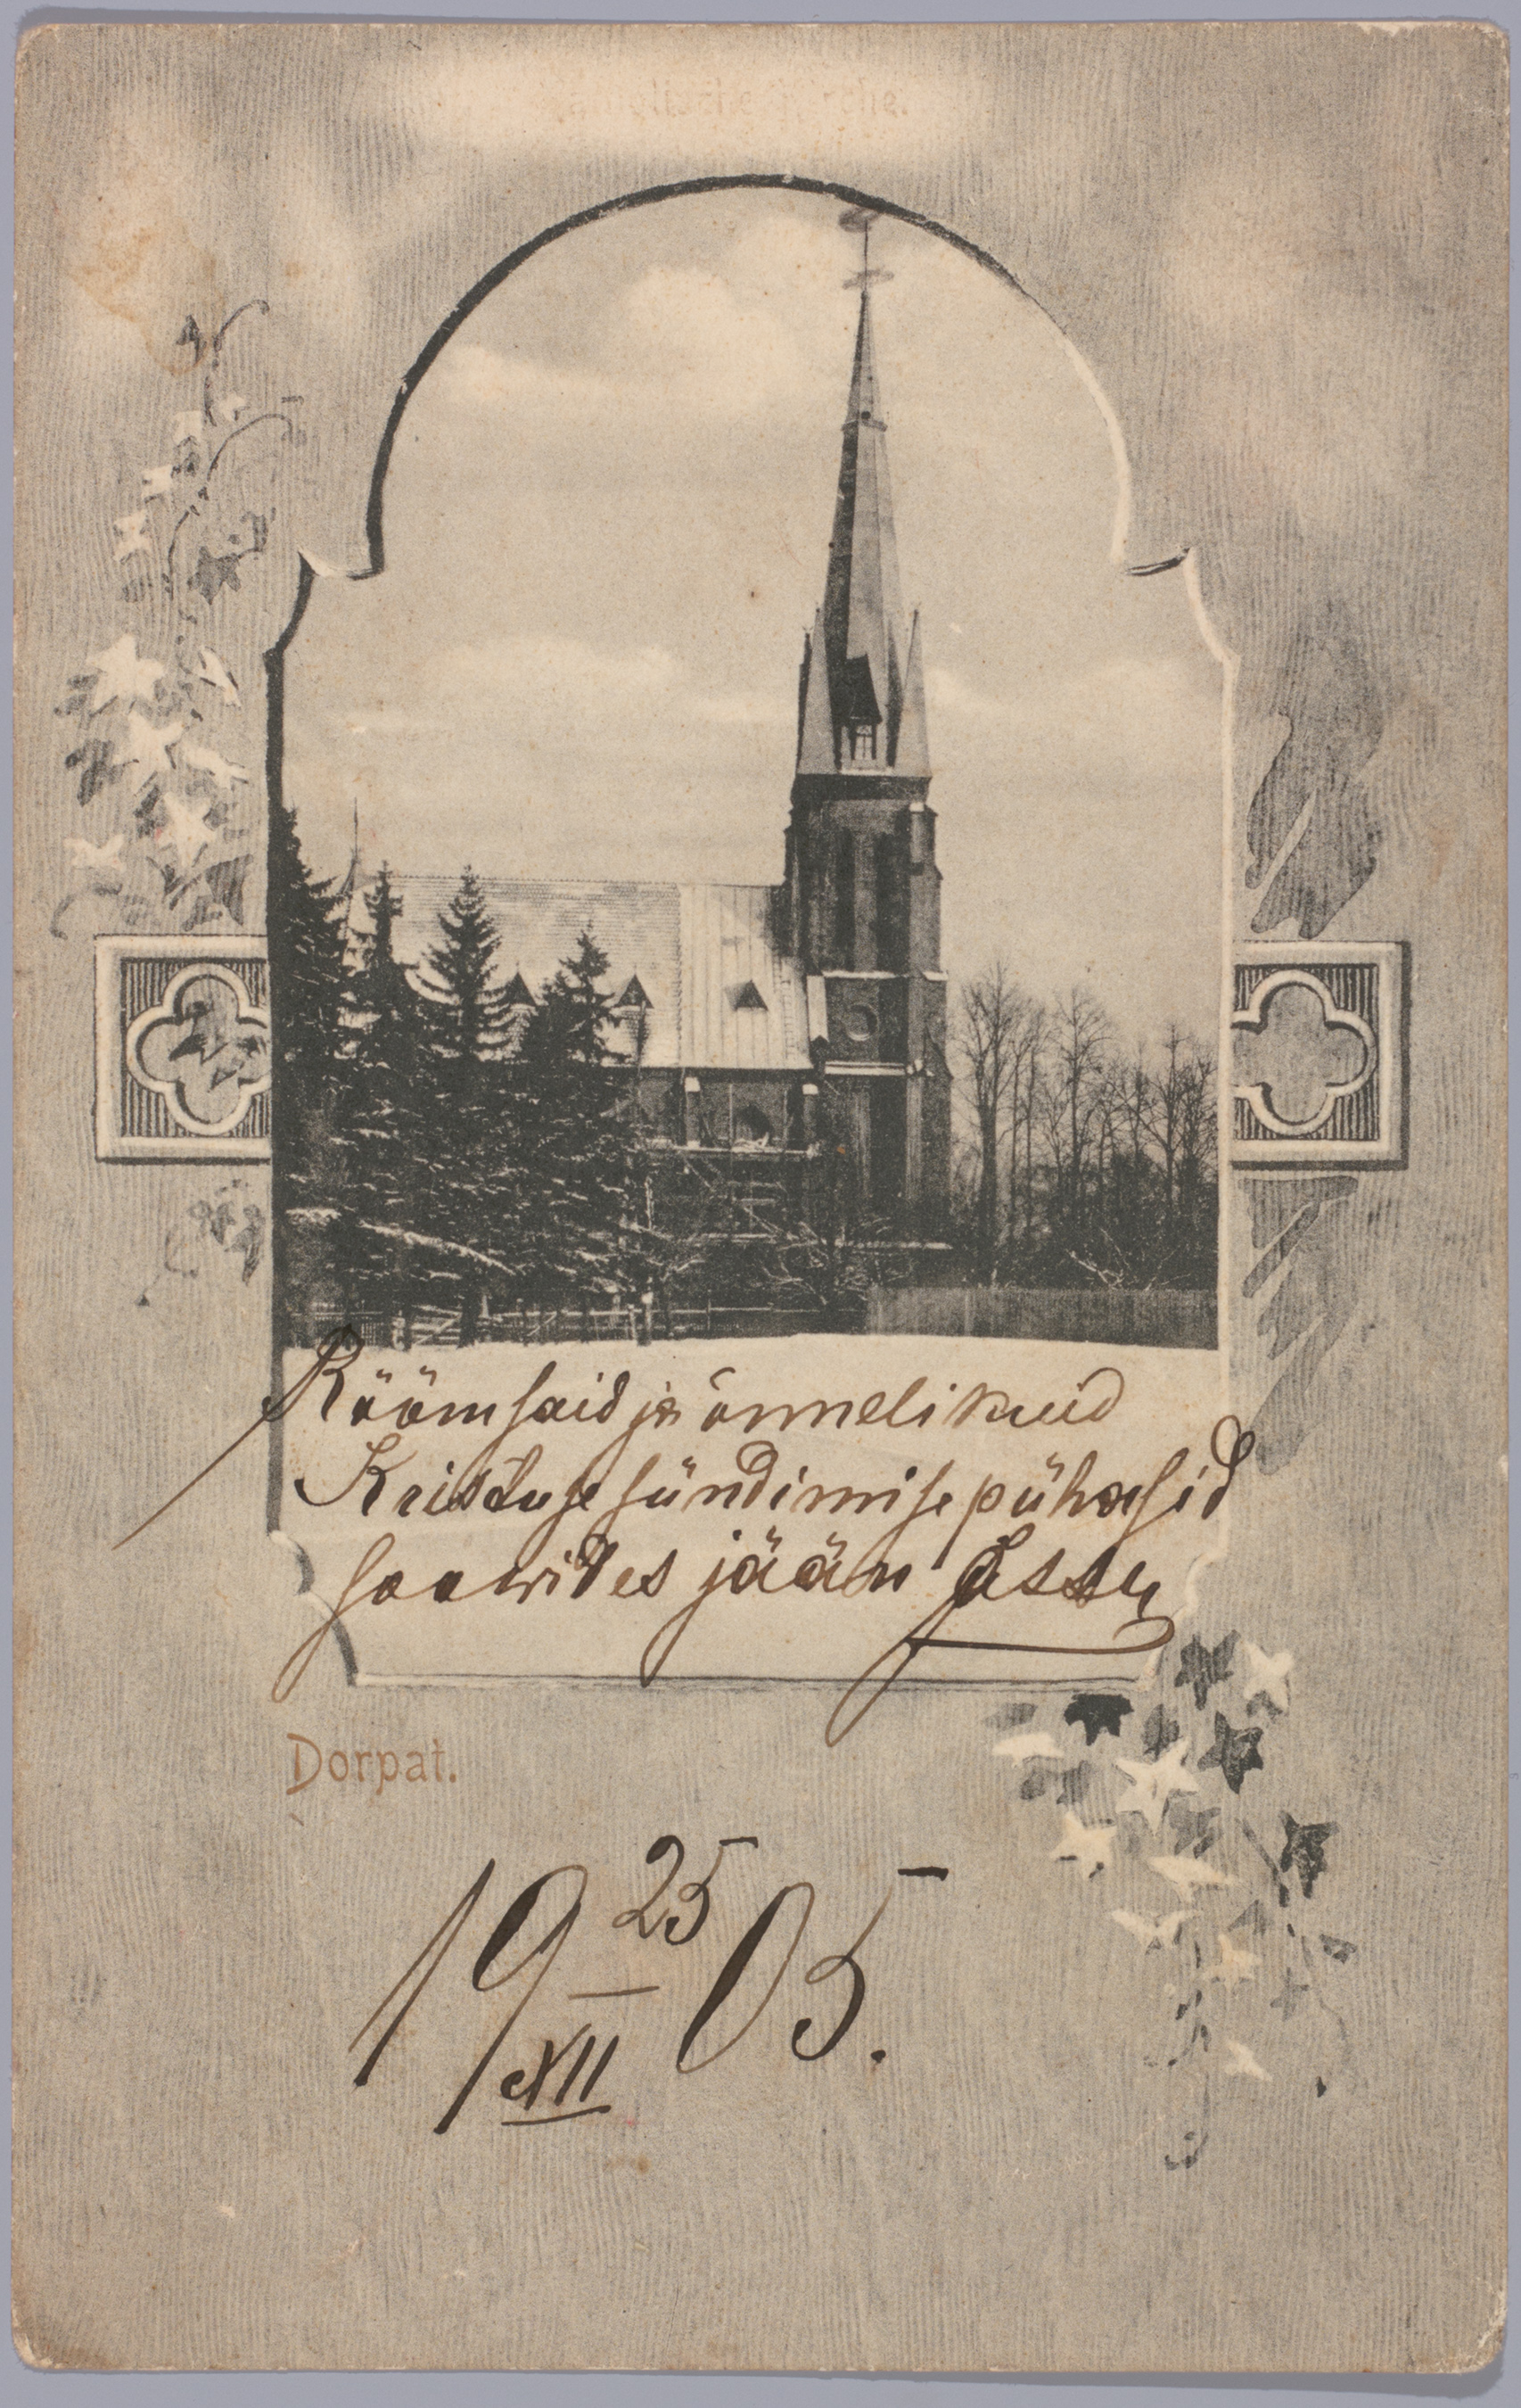 Kirche.
Röömsaid ja õnnelikuid
Kristuse sündimise pühasid
soowides jään
Dorpat.
19 25/XII 05.